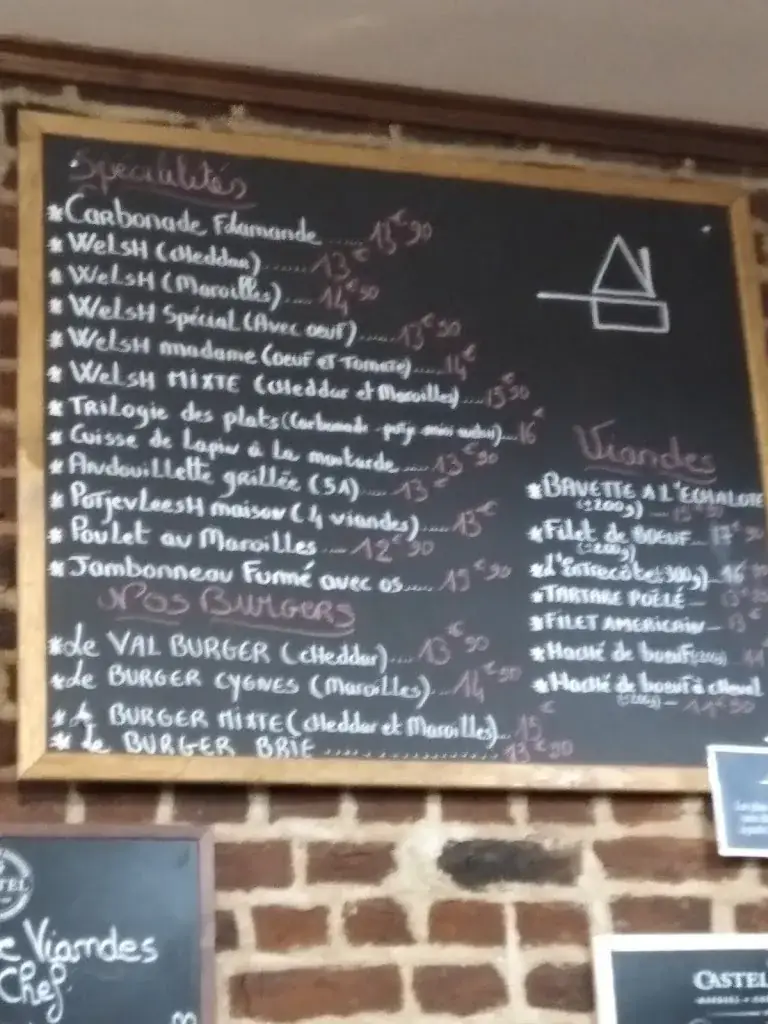 Spécialités
* Carbonade Flamande ..... 13€90
* Welsh (Cheddar) ....... 13€
* Welsh (Maroilles) ..... 14€90
* Welsh Spécial (Avec oeuf) ..... 13€90
* Welsh madame (oeuf et Tomate) .... 14€
* Welsh MIXTE (Cheddar et Maroilles) .... 15€90
* Trilogie des plats (Carbonade - potje - mini welsh) ... 16€
* Cuisse de Lapin à la moutarde .... 13€90
* Andouillette grillée (5A) .... 13€
* Potjevleesh maison (4 viandes) .... 13€
* Poulet au Maroilles ... 12€90
* Jambonneau Fumé avec os .... 19€90
Nos BURGERS
* Le VAL BURGER (cheddar) ... 13€90
* Le BURGER CYGNES (Maroilles) .. 14€90
* Le BURGER MIXTE (cheddar et Maroilles) .. 15€
* Le BURGER BRIE ................ 13€90
Viandes
* BAVETTE A L'ECHALOTE
(±200g)
* Filet de BOEUF - 17€90
(±200g)
* L'Entrecôte (±300g) - 16
* TARTARE POÊLÉ - 13
* FILET AMERICAIN - 13€
* Haché de boeuf
* Haché de boeuf à cheval
- 11€90
Viandes
Chef
CASTEL